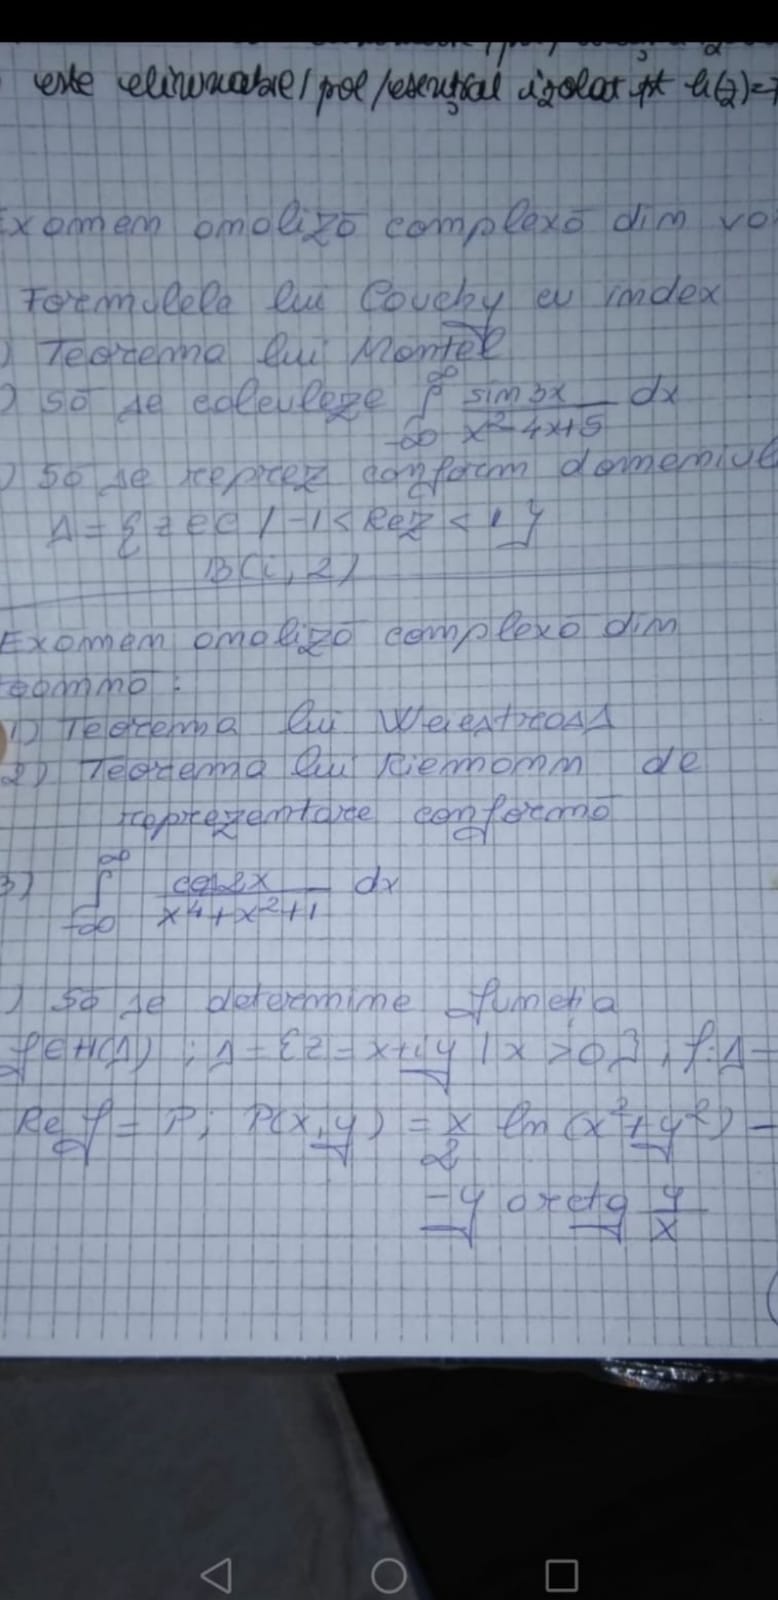 este eliminabil/pol/esențial izolat pt h(z)=
Examen analiză complexă din va
Formulele lui Cauchy cu index
) Teorema lui Montel
) Să se calculeze ∫_{-∞}^{∞} sin 3x / (x² - 4x + 5) dx
) Să se reprez conform domeniul
Δ = {z ∈ C / -1 < Re z < 1}
B(i, 2)
Examen analiză complexă din
toamnă :
1) Teorema lui Weiestrass
2) Teorema lui Riemann de
reprezentare conformă
3) ∫_{-∞}^{∞} cos 2x / (x⁴ + x² + 1) dx
) Să se determine funcția
f ∈ H(Δ) ; Δ = {z = x + iy / x > 0} , f: Δ -
Re f = P ; P(x, y) = x/2 ln (x² + y²) -
- y arctg y/x